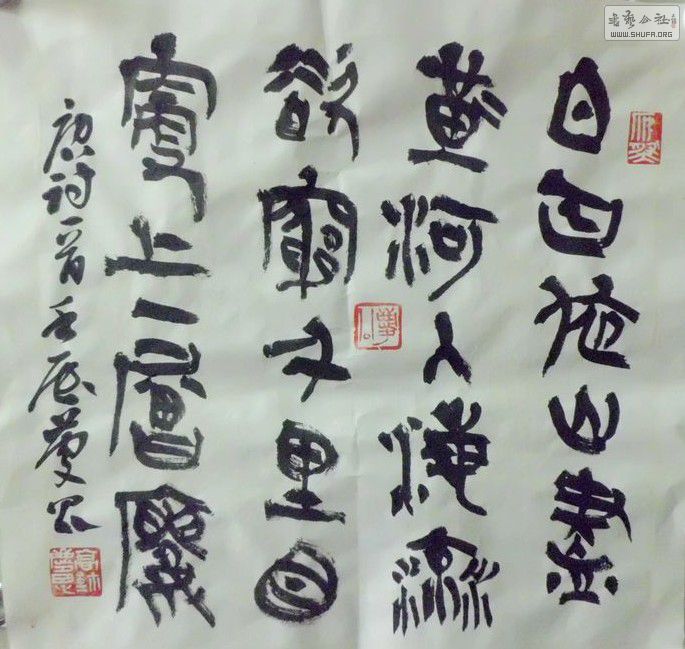 書藝公社
WWW.SHUFA.ORG
白日依山盡
黃河入海流
欲窮千里目
更上一層樓
唐诗一首壬辰